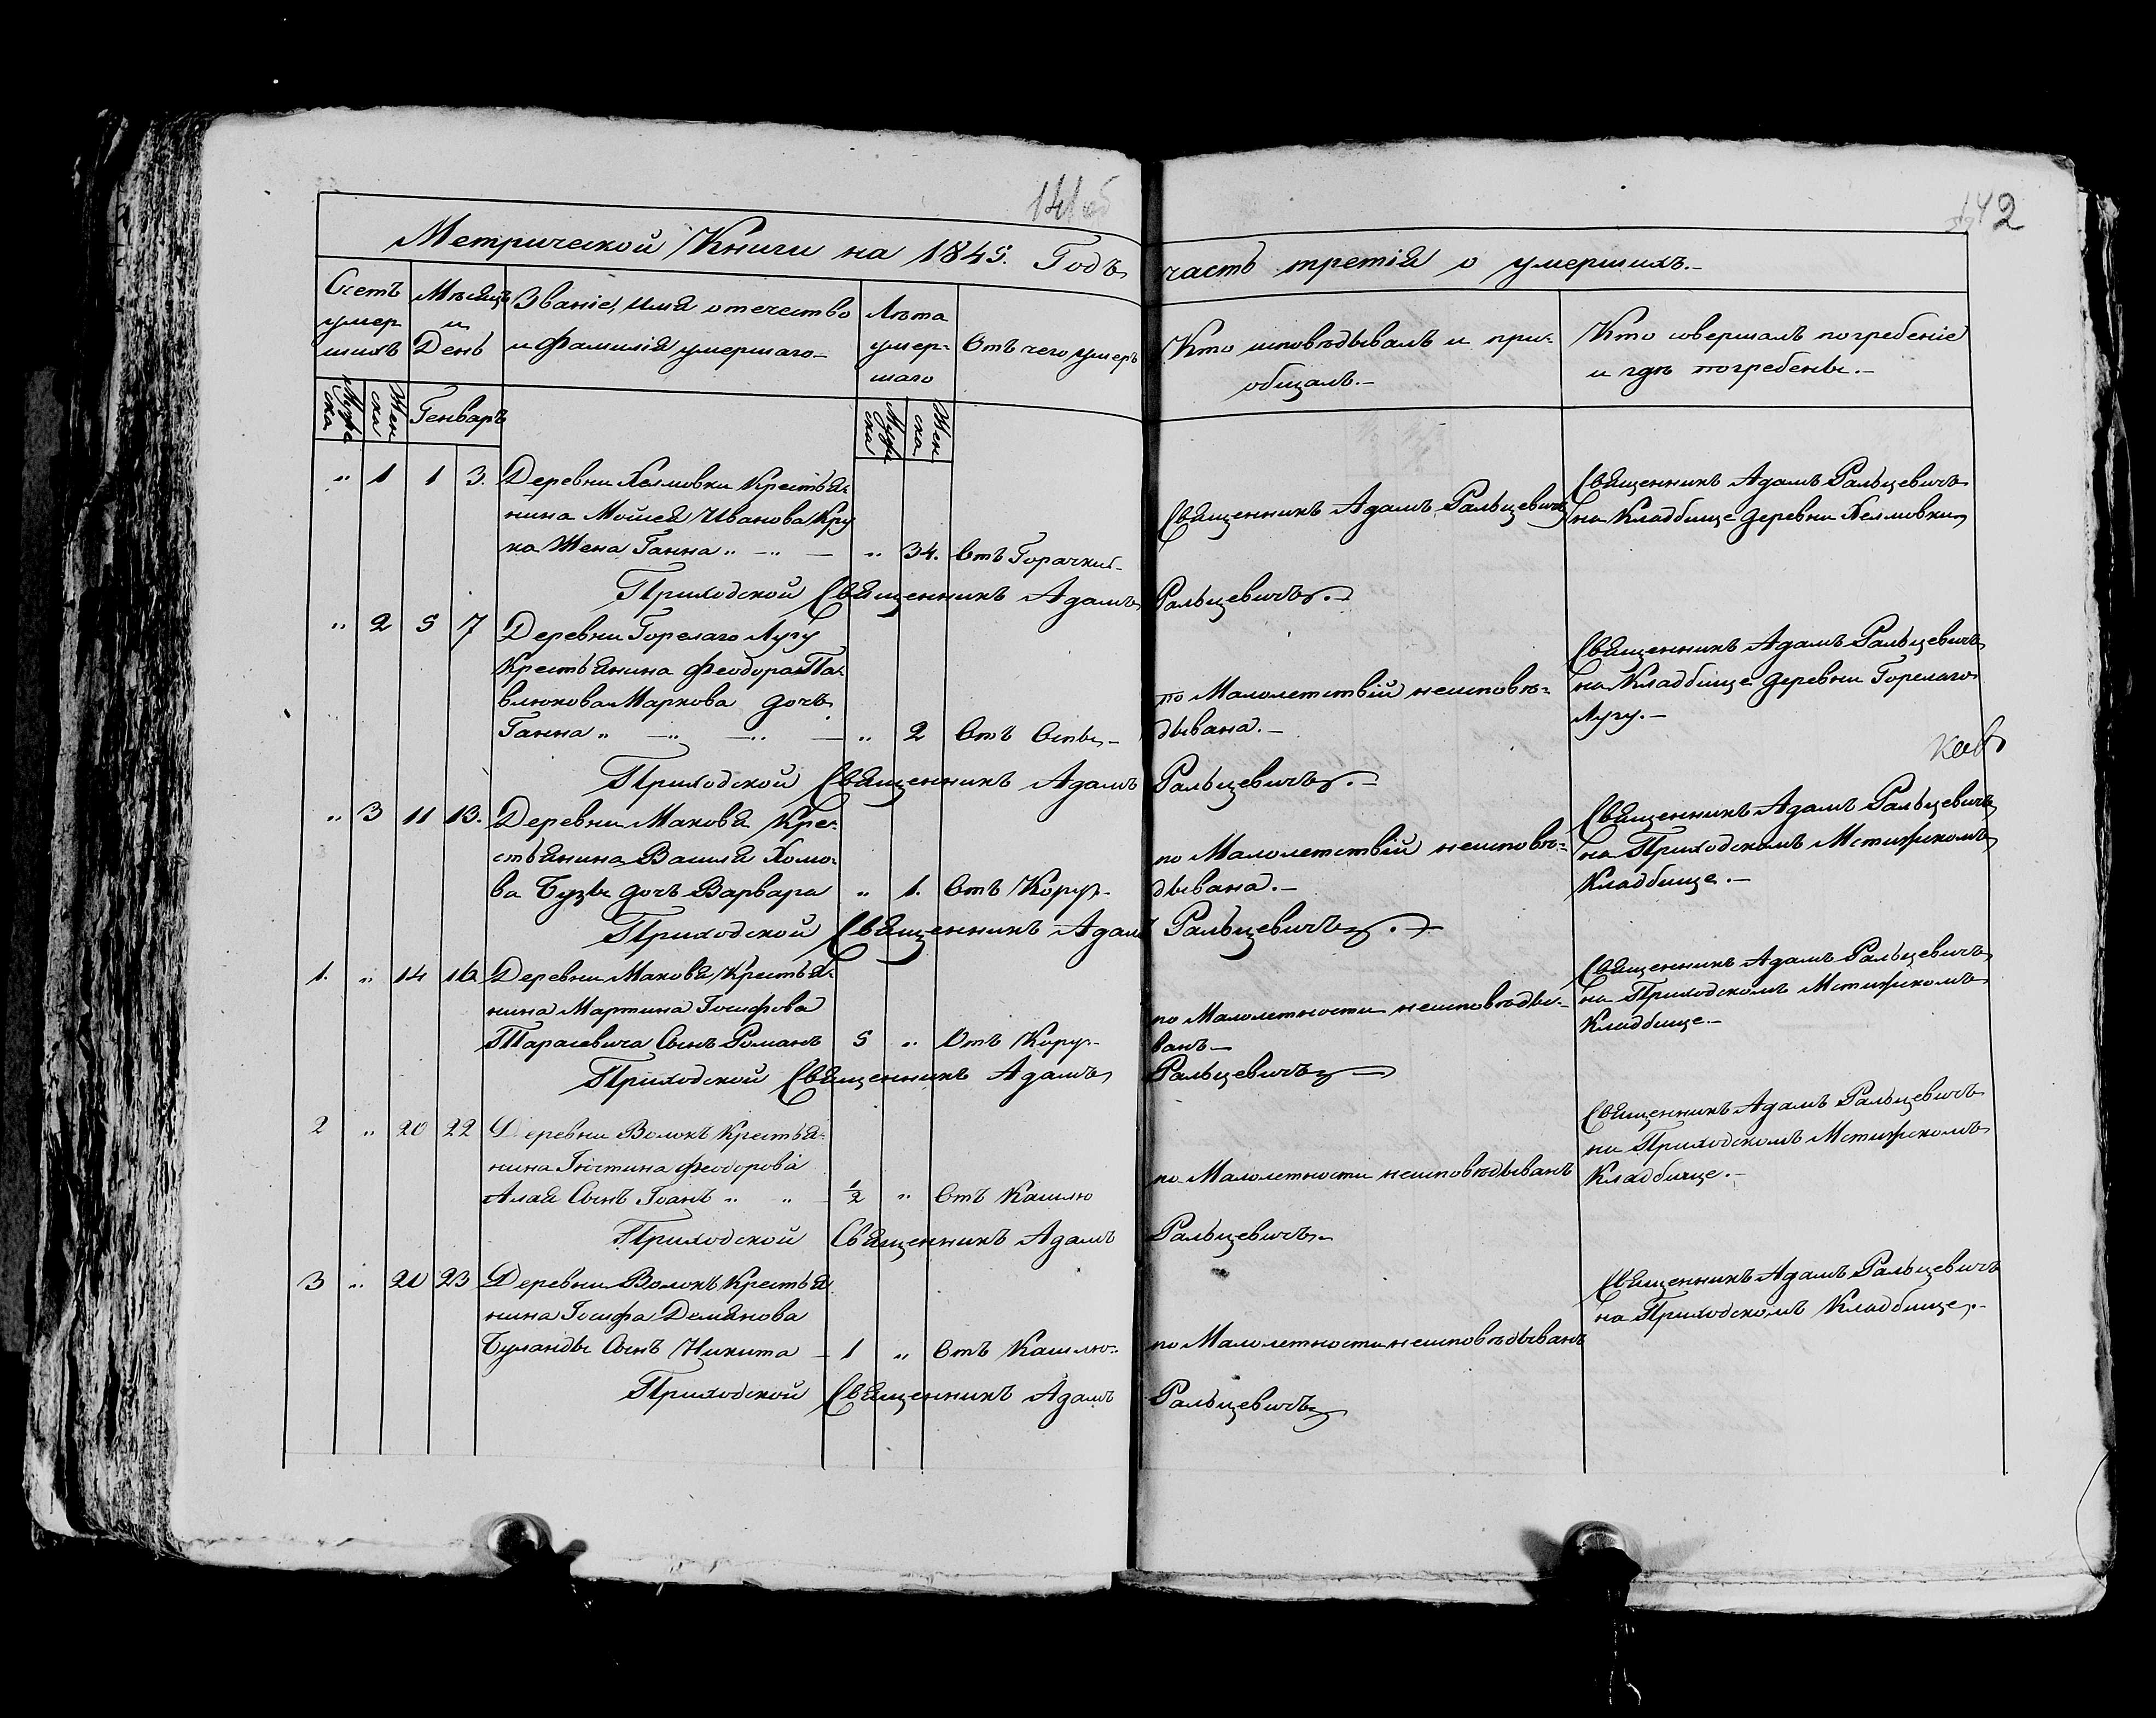 141об
142
Метрической Книги на 1845. Годъ часть третія о умершихъ.-
Счетъ умершихъ
Мѣсяцъ и День
Званіе, имя отечество и фамилія умершаго-
Лѣта умершаго
Отъ чего умеръ
Кто исповѣдывалъ и приобщалъ.-
Кто совершалъ погребеніе и гдѣ погребены.-
Мужеска
Женска
Генваръ
Мужеска
Женска
" 1 1 3. Деревни Хелмовки Крестья-
нина Мойсея Иванова Кру
ка Жена Ганна " -"- " 34. Отъ Горачки-
Священникъ Адамъ Ральцевичъ
Священникъ Адамъ Ральцевичъ
на Кладбище деревни Хелмовки
Приходской Священникъ Адамъ Ральцевичъ.-
" 2 5 7 Деревни Горелаго Лугу
Крестьянина Феодора Па-
влюкова Маркова дочь
Ганна " -" -" - " 2 Отъ Оспы-
по Малолетствій неисповѣ-
дывана.-
Священникъ Адамъ Ральцевичъ
на Кладбище деревни Горелаго
Лугу.-
Приходской Священникъ Адамъ Ральцевичъ.-
" 3 11 13. Деревни Макова Кре-
стьянина Василя Хомо-
ва Бузы дочъ Варвара " 1. Отъ Кору-
по Малолетствій неисповѣ-
дывана.-
Священникъ Адамъ Ральцевичъ
на Приходскомъ Мстижскомъ
Кладбище.-
Приходской Священникъ Адамъ Ральцевичъ.-
1. " 14 16 Деревни Макова Крестья-
нина Мартина Іосифова
Тарасевича Сынъ Романъ 5 " Отъ Кору-
по Малолетности неисповѣды-
ванъ-
Священникъ Адамъ Ральцевичъ
на Приходскомъ Мстижскомъ
Кладбище.-
Приходской Священникъ Адамъ Ральцевичъ
2 " 20 22 Деревни Волокъ Крестья-
нина Іюстина Феодорова
Алая Сынъ Іоанъ " " ½ " Отъ Кашлю
по Малолетности неисповѣдыванъ
Священникъ Адамъ Ральцевичъ
на Приходскомъ Мстижскомъ
Кладбище.-
Приходской Священникъ Адамъ Ральцевичъ
3 " 21 23 Деревни Волокъ Крестья
нина Іосифа Демянова
Буланды Сынъ Никита - 1 " Отъ Кашлю-
по Малолетности неисповѣдыванъ
Священникъ Адамъ Ральцевичъ
на Приходскомъ Кладбище.-
Приходской Священникъ Адамъ Ральцевичъ